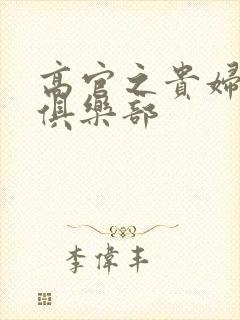 高官之貴婦
俱樂部
李偉丰